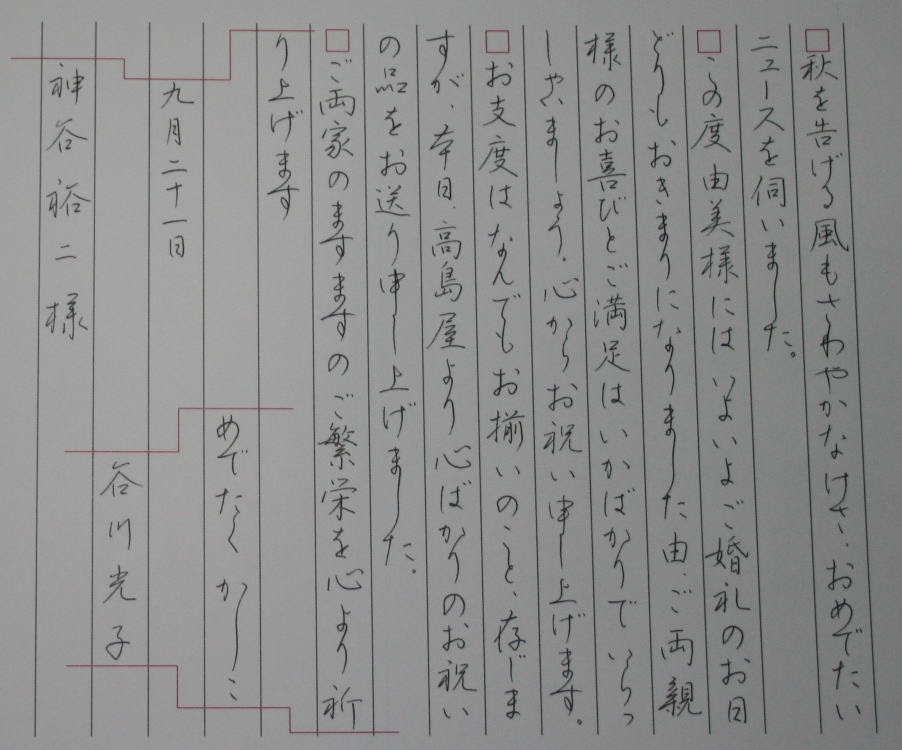 秋を告げる風もさわやかなけさ、おめでたい
ニュースを伺いました。
この度由美様にはいよいよご婚礼のお日
どりもおきまりになりました由、ご両親
様のお喜びとご満足はいかばかりでいらっ
しゃいましょう。心からお祝い申し上げます。
お支度はなんでもお揃いのことと存じま
すが、本日、高島屋より心ばかりのお祝い
の品をお送り申し上げました。
ご両家のますますのご繁栄を心より祈
り上げます
めでたくかしこ
九月二十一日
谷川光子
神谷裕二様